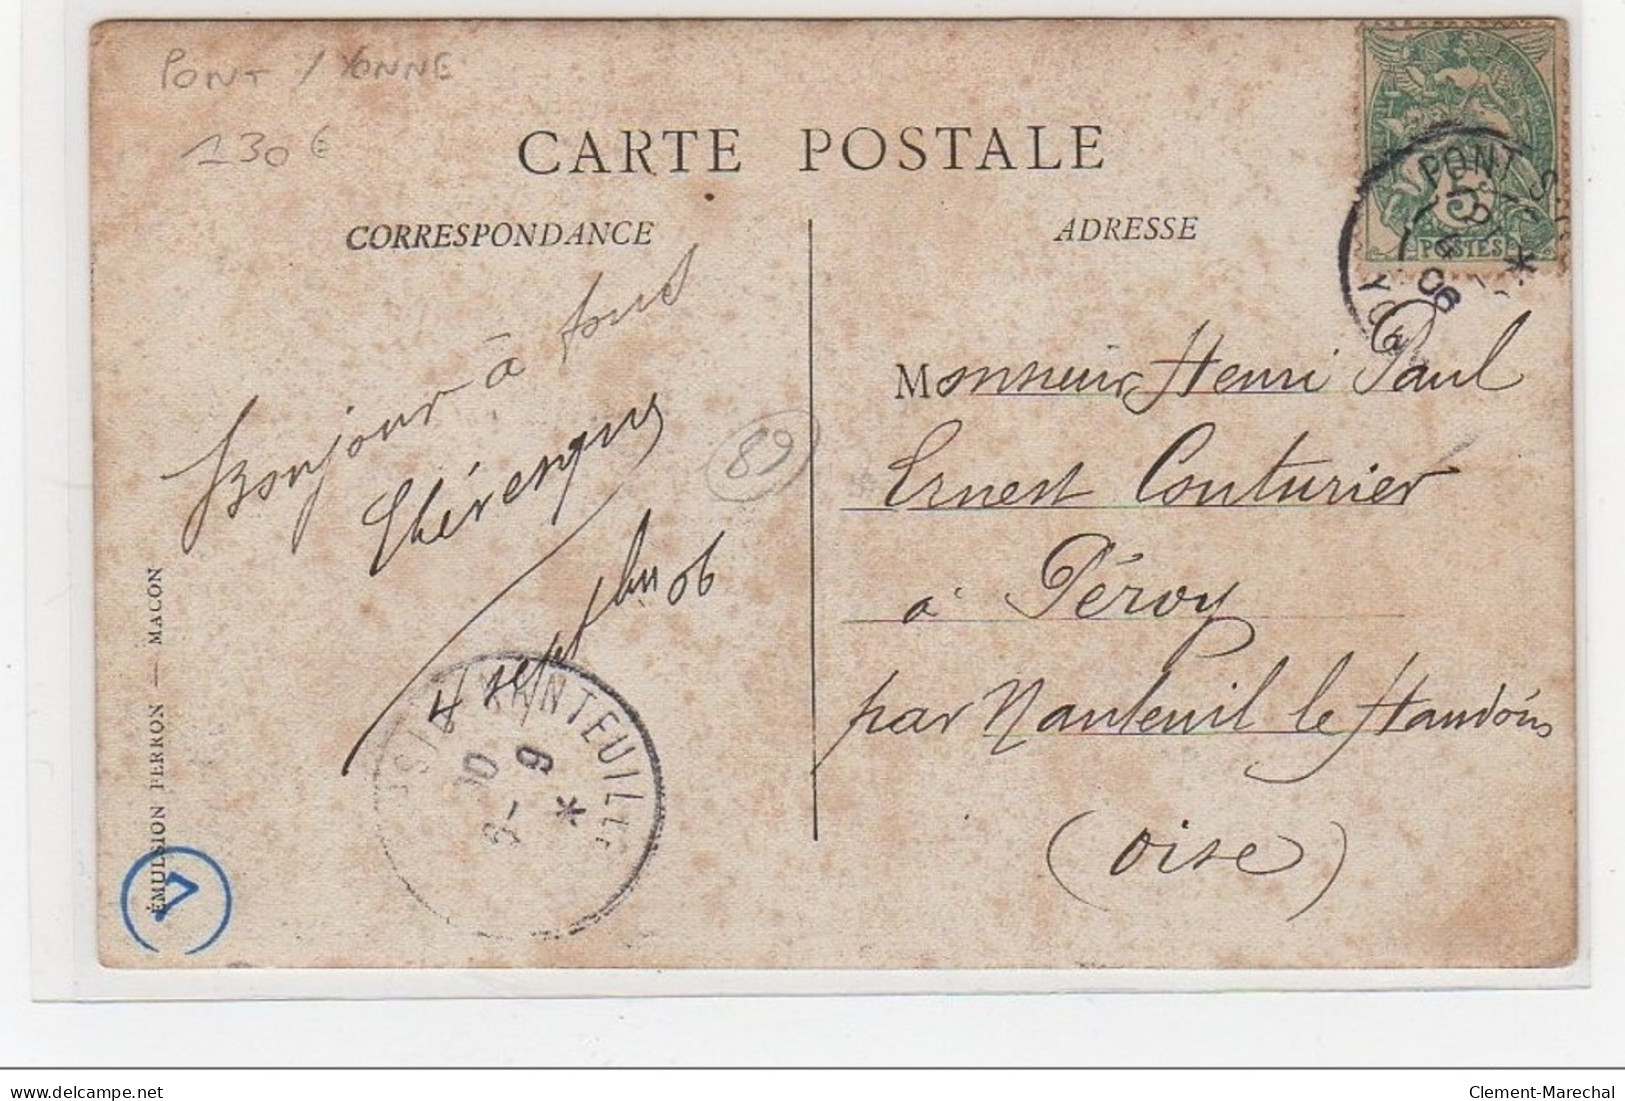 PONT / YONNE
130€
CARTE POSTALE
CORRESPONDANCE
ADRESSE
PONT S
5
POSTES
06
Bonjour à tous
4 septbre 06
89
Monsieur Henri Paul
Ernest Couturier
à Péroy
par Nanteuil le Haudoin
(Oise)
NANTEUIL
ÉMULSION PERRON — MACON
delcampe.net
Clement-Marechal